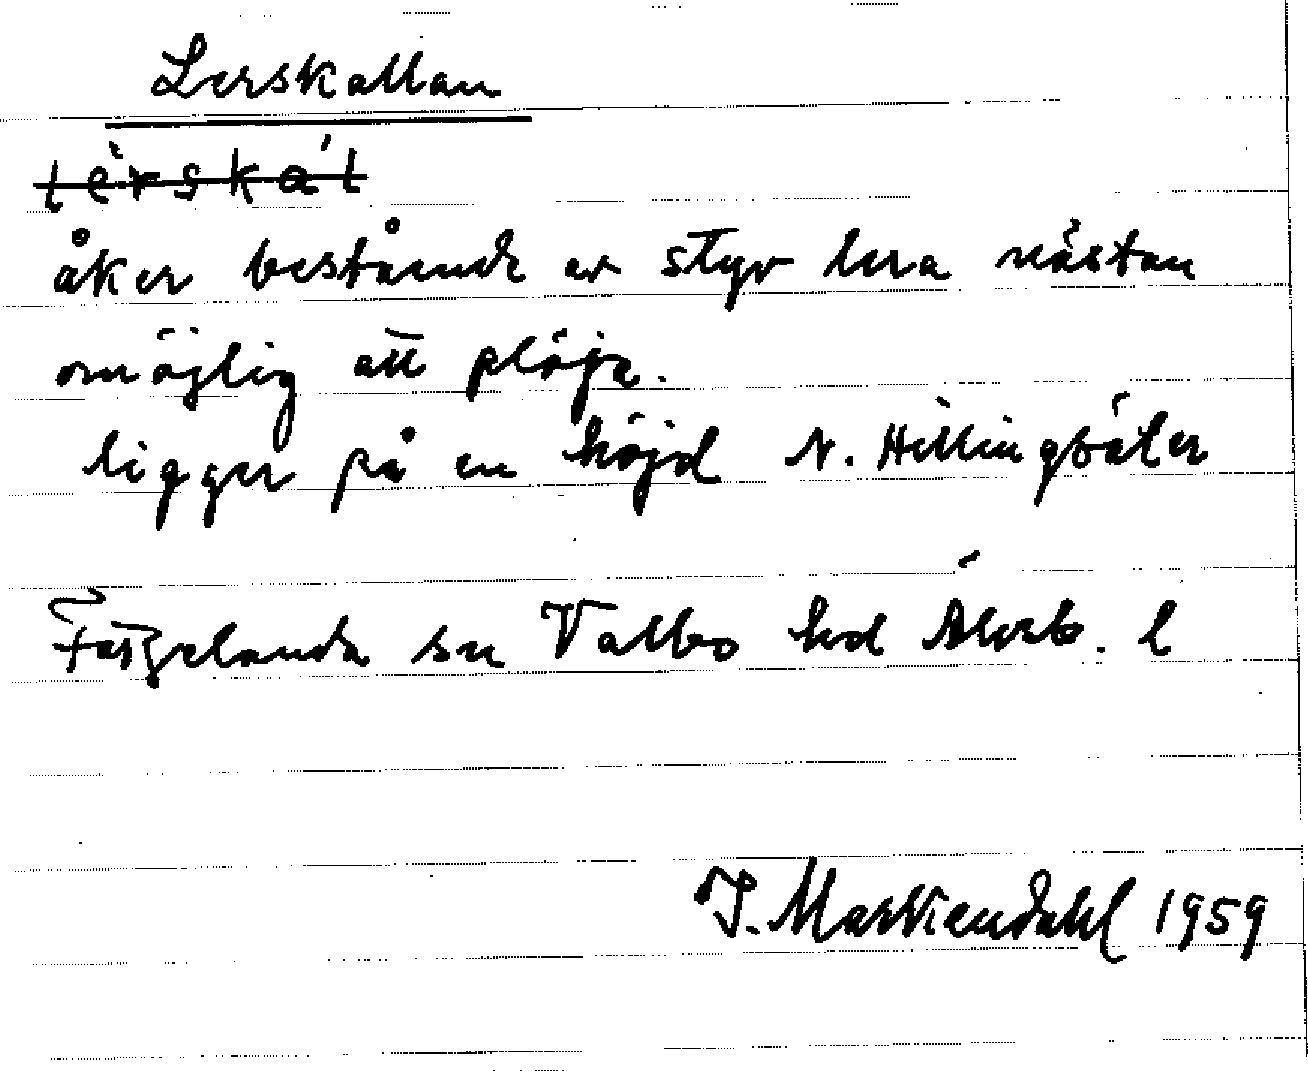 Lerskallan
lèrskál
åker bestående av styv lera nästan
omöjlig att plöja.
ligger på en höjd N. Hillingsäter
Färgelanda sn Valbo hd Älvsb. l
J. Markendahl 1959